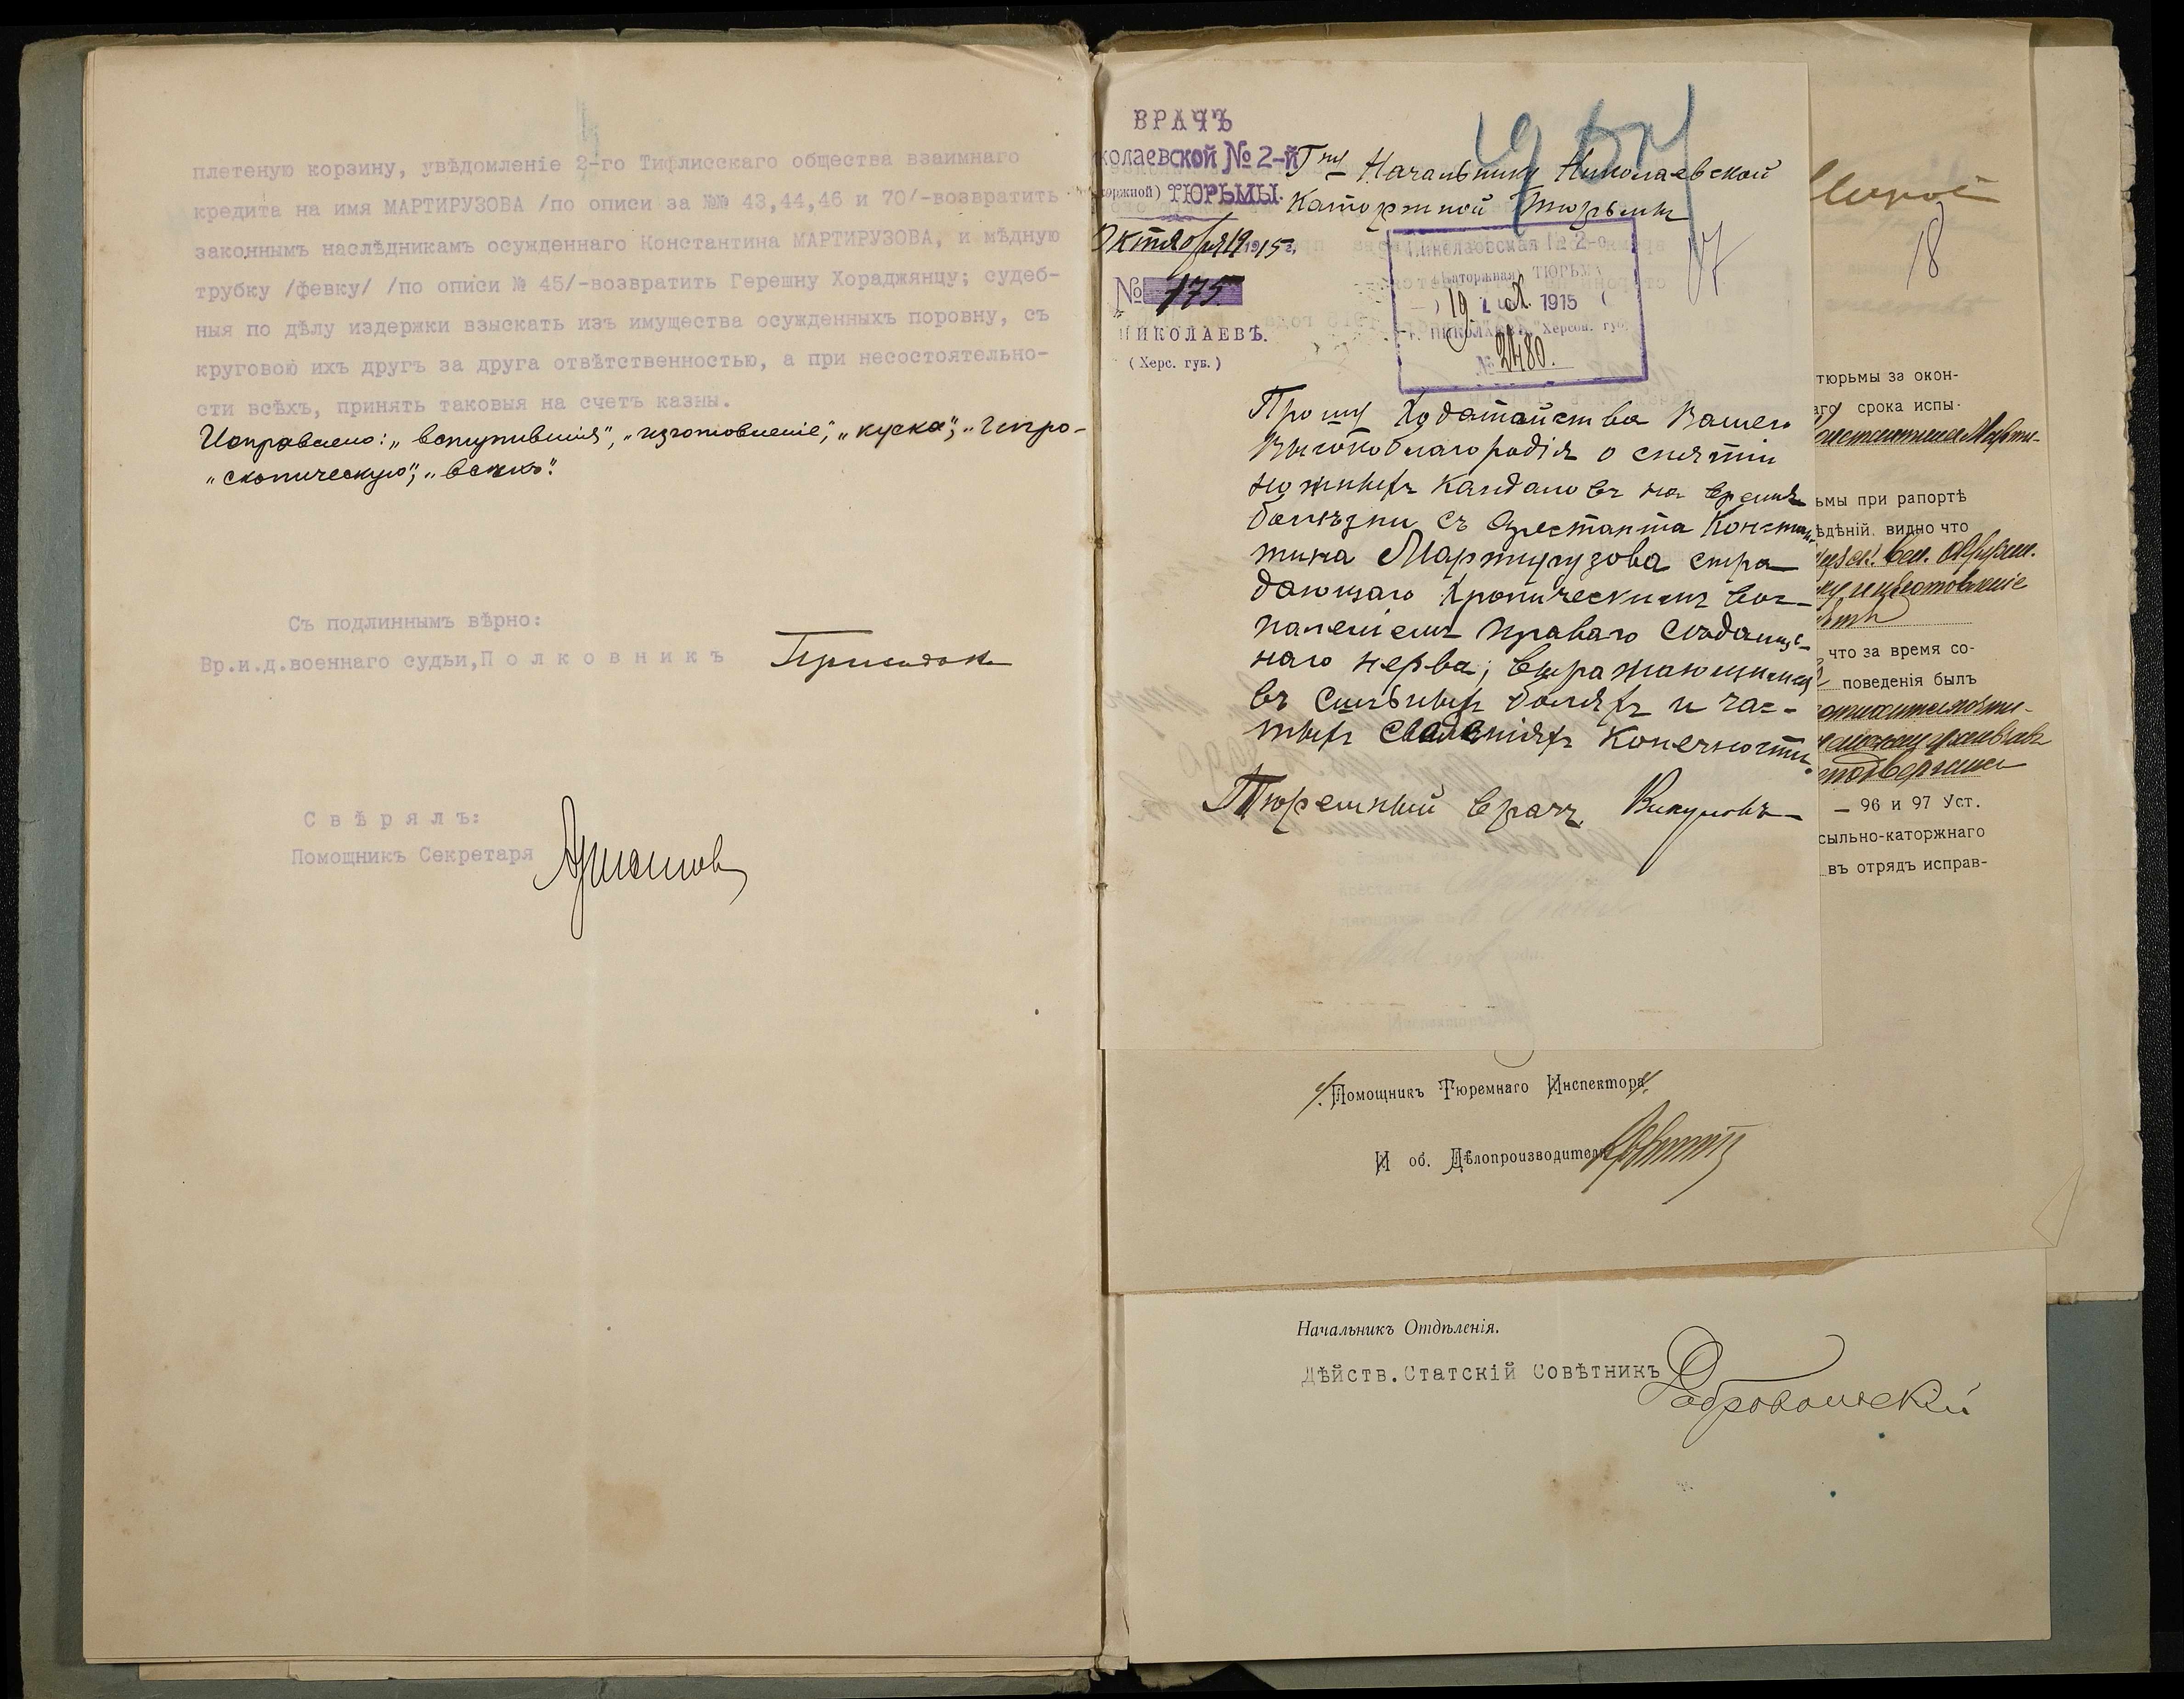 плетеную корзину, увѣдомленіе 2-го Тифлисскаго общества взаимнаго
кредита на имя МАРТИРУЗОВА /по описи за №№ 43,44,46 и 70/-возвратить
законнымъ наслѣдникамъ осужденнаго Константина МАРТИРУЗОВА, и мѣдную
трубку /февку/ /по описи № 45/-возвратить Герешну Хораджянцу; судеб-
ныя по дѣлу издержки взыскать изъ имущества осужденныхъ поровну, съ
круговою ихъ другъ за друга отвѣтственностью, а при несостоятельно-
сти всѣхъ, принять таковыя на счетъ казны.
Исправлено: „вступившія", „изготовленіе", „куска", „гигро-
„скопическую",
Съ подлиннымъ вѣрно:
Вр.и.д.военнаго судьи,Полковникъ
Свѣрялъ:
Помощникъ Секретаря
ВРАЧЪ
колаевской № 2-й
торжной) ТЮРЬМЫ.
Октября 19 1915 г.
№ 175
НИКОЛАЕВЪ.
(Херс. губ.)
Гну Начальнику Николаевской
Каторжной Тюрьмы
17
Николаевская № 2-о
(Каторжная) ТЮРЬМА
19 X 1915
г. НИКОЛАЕВЪ, Херсон. губ.
№ 2480.
Прошу Ходатайства Вашего
Высокоблагородія о снятіи
ножныхъ кандаловъ на время
болѣзни съ Арестанта Констан
тина Мартирузова стра-
дающаго хроническимъ вос-
паленіемъ праваго сѣдалищ-
наго нерва; выражающимся
въ сильныхъ боляхъ и час-
тыхъ сведеніяхъ конечности.
Тюремный врачъ Викуловъ
18
тюрьмы за окон-
аго срока испы-
Константина Марти-
ьмы при рапортѣ
ѣдѣній, видно что
и изготовленіе
что за время со-
поведенія былъ
— 96 и 97 Уст.
сыльно-каторжнаго
въ отрядъ исправ-
Помощникъ Тюремнаго Инспектора
И об. Дѣлопроизводителя
Начальникъ Отдѣленія.
Дѣйств.Статскій Совѣтникъ
Добровольскій